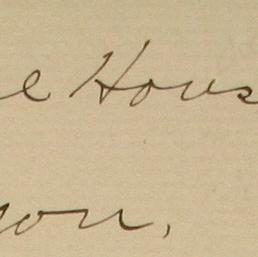 e Hous
on,